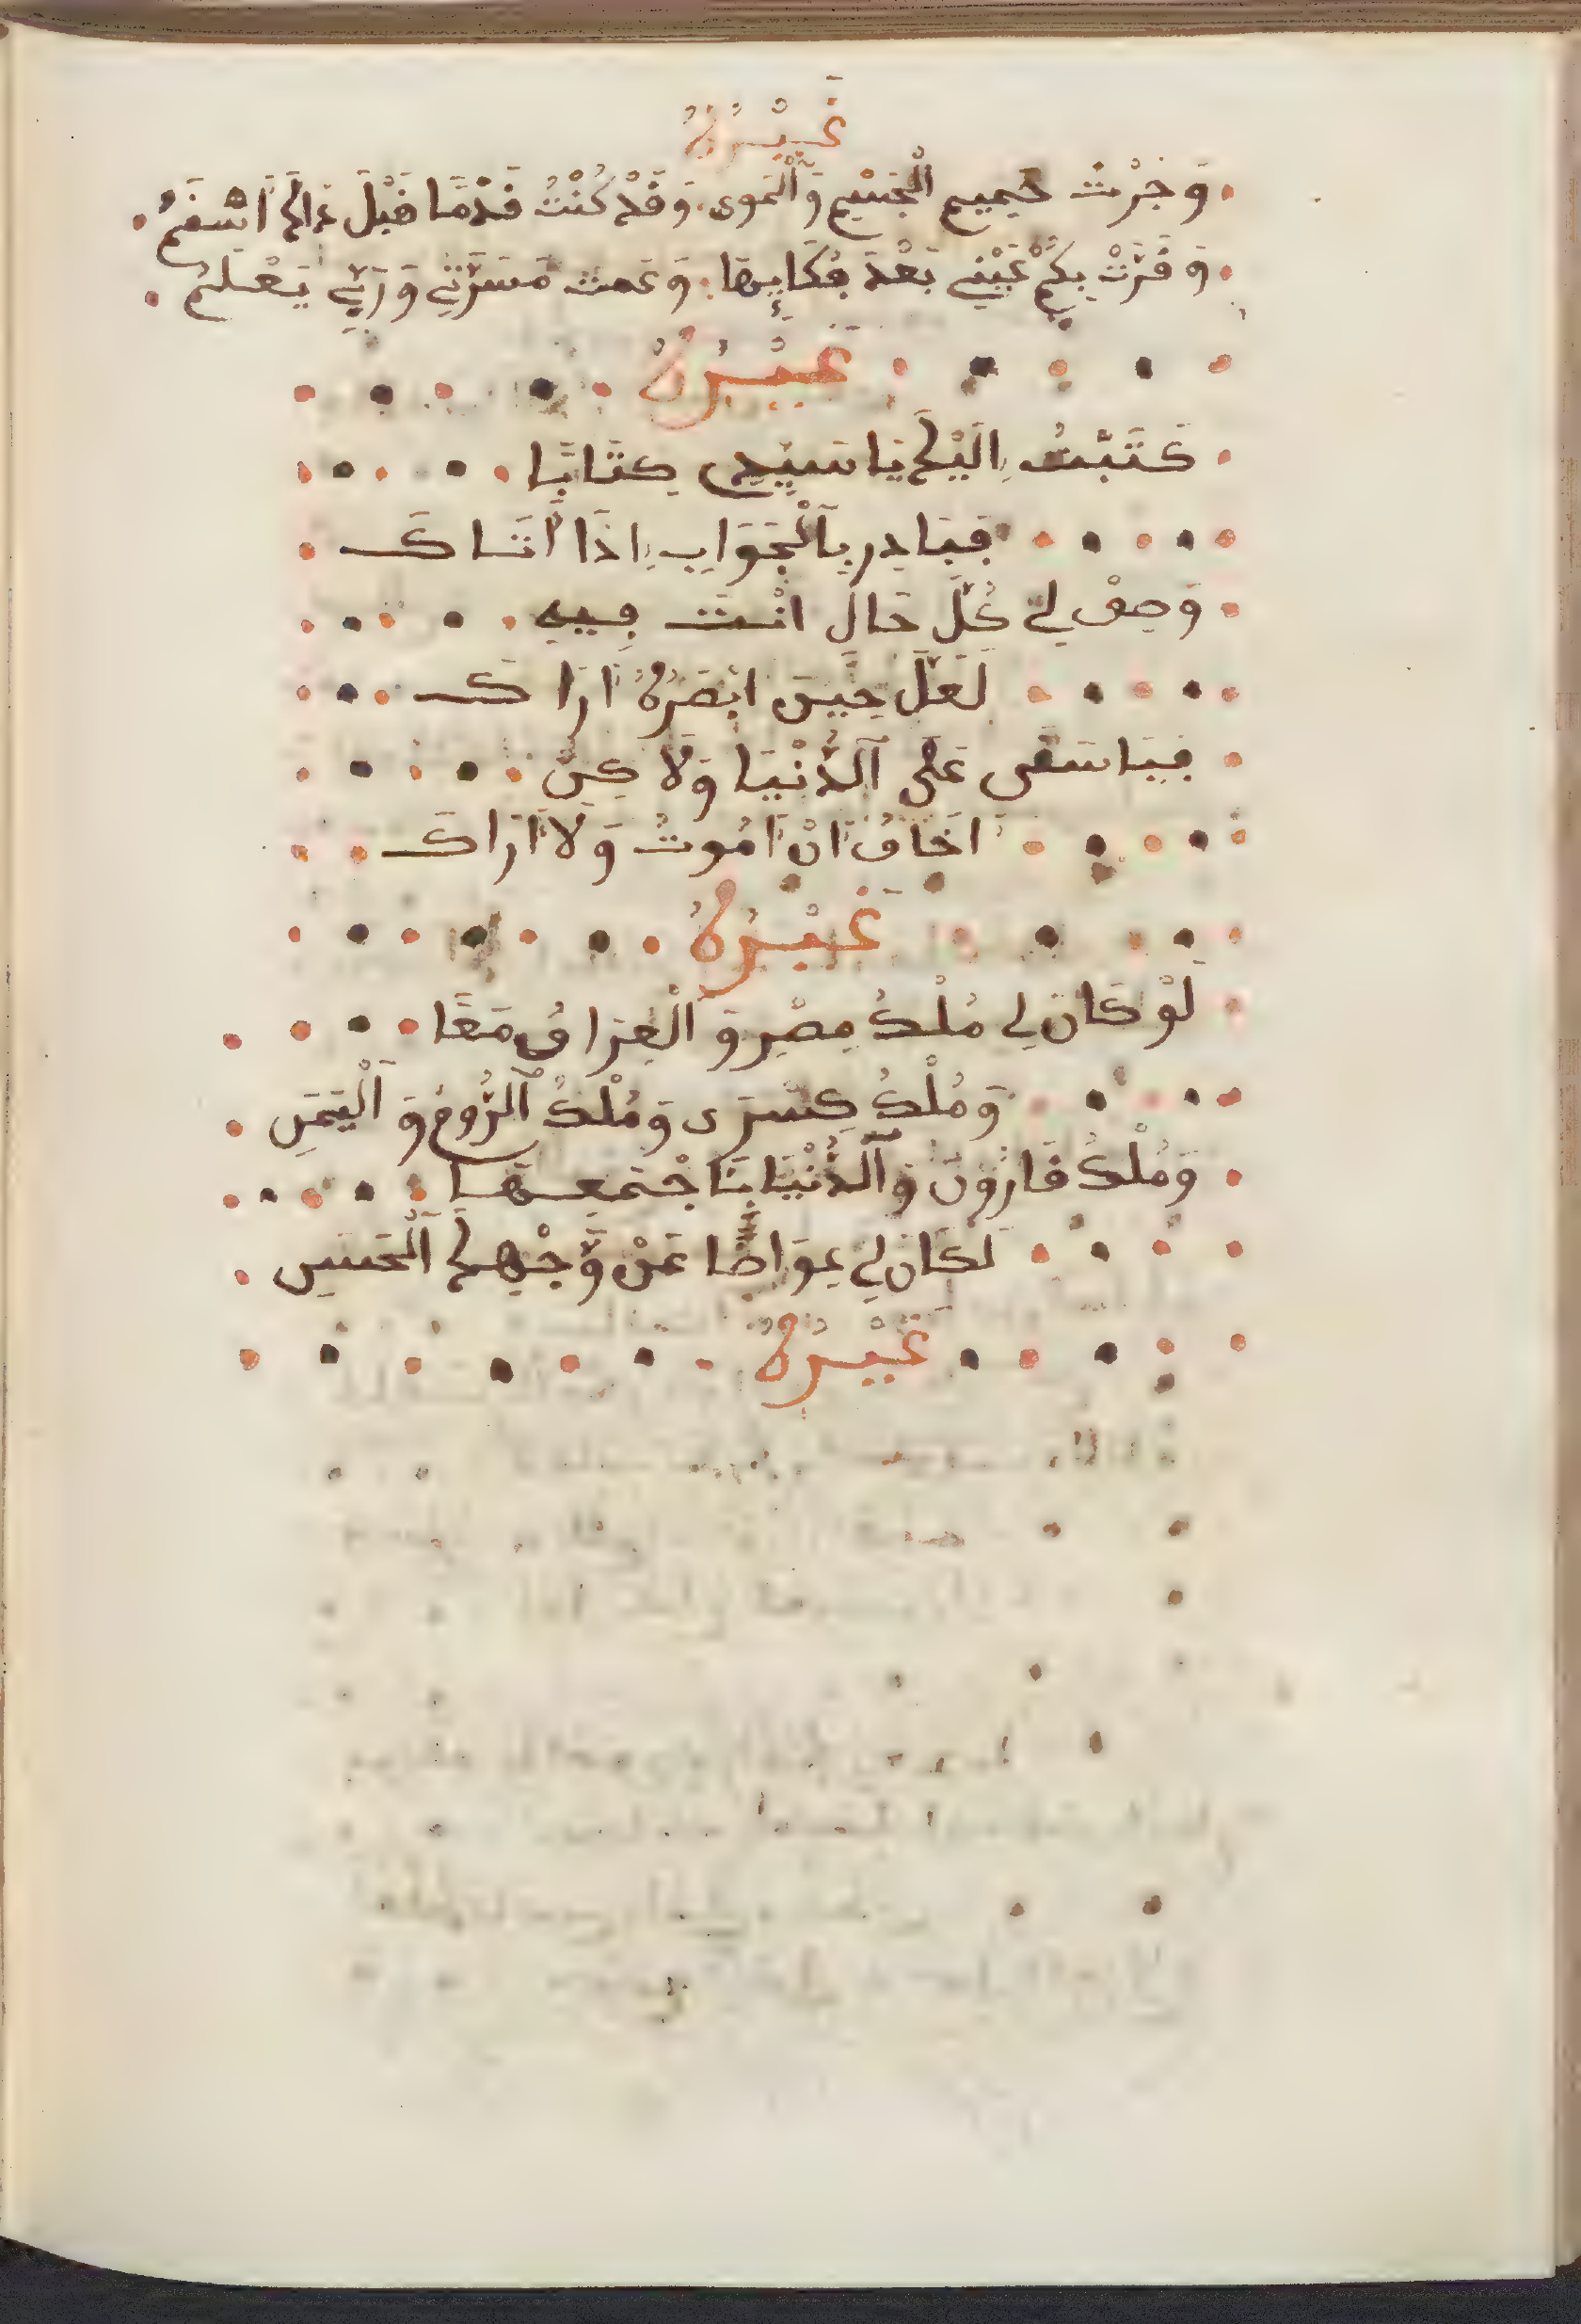 غَيْرُهُ
وَجِرْتُ حَمِيمِ الْجِسْمِ وَالْهَوى . وَقَدْ كُنْتُ قِدْمًا قَبْلَ ذَالِكَ أَسْقَمُ
وَقَرَّتْ بِكُمْ عَيْنِي بَعْدَ بُكَايِهَا . وَعمت مَسَرَّتِي وَرَبِّي يَعْلَمُ
غَيْرُهُ
كَتَبْتُ إِلَيْكَ يَا سَيِّدِي كِتَابًا
فَبَادِر بِالْجَوَابِ إِذَا أَتَاكَ
وَصِفْ لِي كُلَّ حَالٍ انْتَ فِيهِ
لَعَلَّ حِينَ ابْصَرُهُ أَرَاكَ
فَيَا سَفَى عَلَى الدُّنْيَا وَلَا كِنْ
اَخَافُ أَنْ أَمُوتُ وَلَا أَرَاكَ
غَيْرُهُ
لَوْ كَانَ لِي مُلْكُ مِصْرِ وَالْعِرَاقِ مَعًا
وَمُلْكُ كِسْرَى وَمُلْكُ الرُّومِ وَالْيَمَنِ
وَمُلْكُ قَارُونَ وَالدُّنْيَا بِأَجْمَعِهَا
لَكَانَ لِي عِوَاضًا عَنْ وَّجْهِكَ الْحَسَنِ
غَيْرُهُ